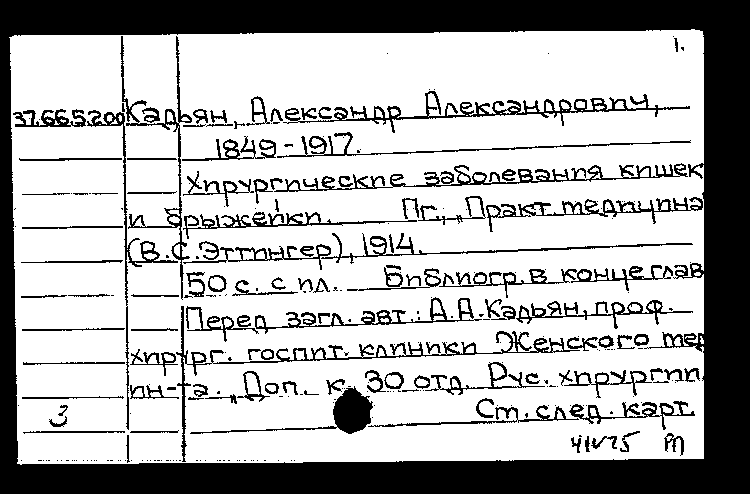 1.
37.665.200 Кадьян, Александр Александрович,
1849-1917.
Хирургические заболевания кишек
и брыжейки. Пг., „Практ. медицина
(В.С.Эттингер), 1914.
50 с. с ил. Библиогр. в конце глав
Перед загл. авт.: А.А.Кадьян, проф.
хирург. госпит. клиники Женского мед
ин-та. „Доп. к 30 отд. Рус. хирургии
3 Ст. след. карт.
РП